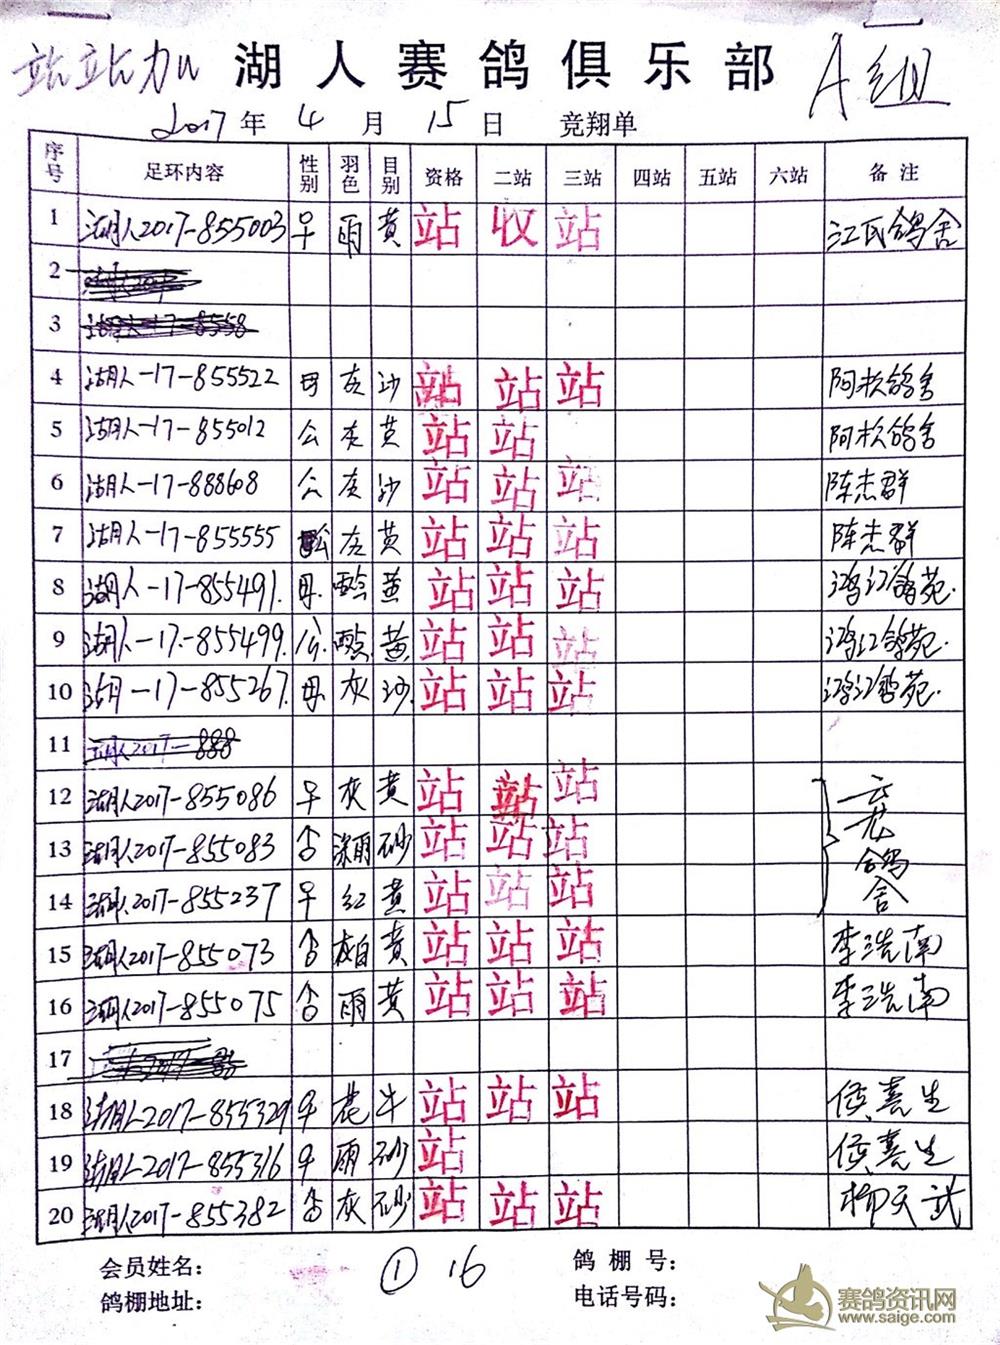 站站加 湖人赛鸽俱乐部 A组
2017年4月15日 竞翔单
序号 足环内容 性别 羽色 目别 资格 二站 三站 四站 五站 六站 备注
1 湖人2017-855003 早 雨 黄 站 收 站 江氏鸽舍
2
3 湖人-17-8558
4 湖人-17-855522 母 灰 沙 站 站 站 阿松鸽舍
5 湖人-17-855012 公 灰 黄 站 站 阿松鸽舍
6 湖人-17-888608 公 灰 沙 站 站 站 陈志群
7 湖人-17-855555 公 灰 黄 站 站 站 陈志群
8 湖人-17-855491. 母. 黄 站 站 站 鸿江鸽苑.
9 湖人-17-855499. 公. 黄 站 站 站 鸿江鸽苑.
10 湖人-17-855267. 母 灰 沙. 站 站 站 鸿江鸽苑.
11 湖人2017-888
12 湖人2017-855086 早 灰 黄 站 站 站 云龙鸽舍
13 湖人2017-855083 合 深雨 砂 站 站 站
14 湖人2017-855237 早 红 黄 站 站 站
15 湖人2017-855073 合 灰白 黄 站 站 站 李浩南
16 湖人2017-855075 合 雨 黄 站 站 站 李浩南
17
18 湖人2017-855329 早 花 牛 站 站 站 侯嘉生
19 湖人2017-855316 早 雨 砂 站 侯嘉生
20 湖人2017-855382 合 灰 砂 站 站 站 柳天武
会员姓名： ① 16 鸽棚号：
鸽棚地址： 电话号码：
赛鸽资讯网
www.saige.com